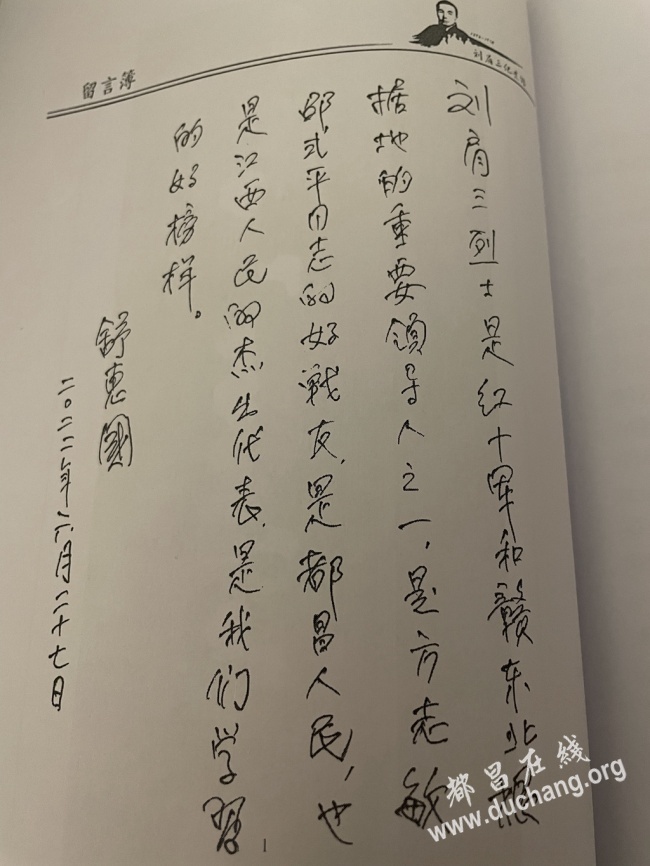 留言簿
刘肩三烈士是红十军和赣东北根
据地的重要领导人之一，是方志敏
邵式平同志的好战友，是都昌人民，也
是江西人民的杰出代表，是我们学习
的好榜样。
舒惠国
二〇二二年六月二十七日
1
都昌在线
www.duchang.org